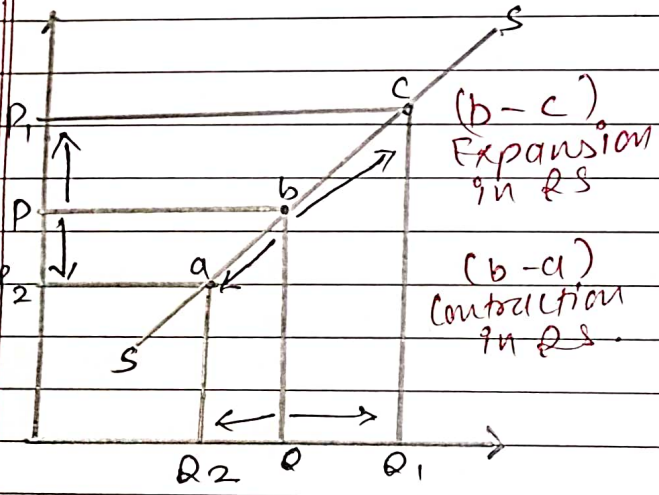 S
C
(b - c)
P1
Expansion
in QS
b
P
a
(b - a)
2
Contraction
in QS.
S
Q2 Q Q1